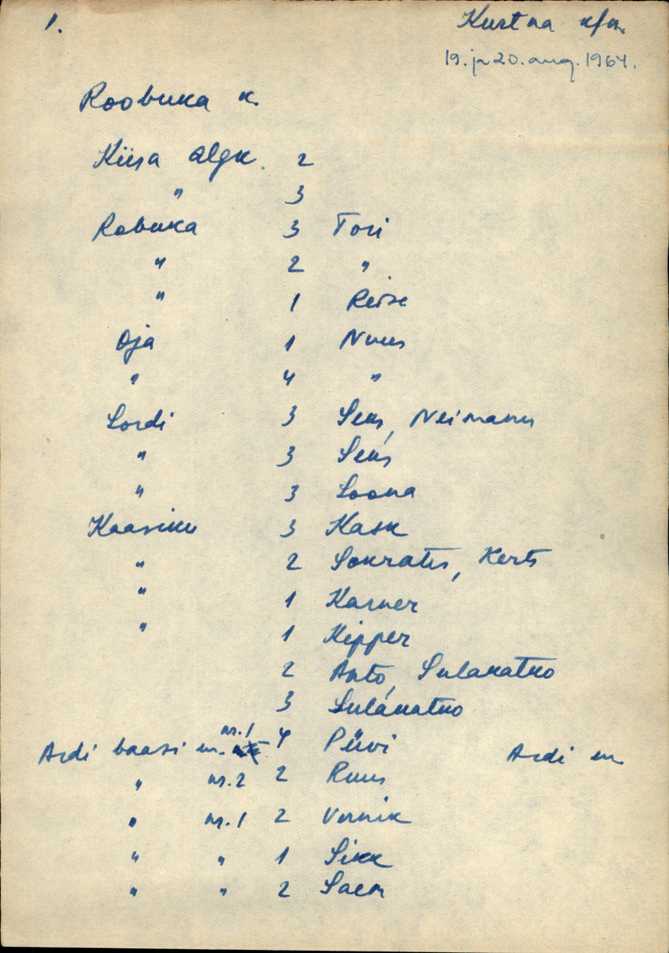 1. Kurtna
19. ja 20. aug. 1964.
Roobuka k.
Kiisa algk. 2
" 3
Robuka 3 Tori
" 2 "
" 1
Oja 1 Nuus
" 4 "
Lordi 3 Seas, Neimann
" 3 Seas
" 3 Loona
Kaasiku 3 Kask
" 2 Sokrates, Kerts
" 1 Karner
" 1 Kipper
2 Anto, Sulakatko
3 Sulakatko
Ardi baasi nr. 1 4 Püvi Ardi
" nr. 2 2 Ruus
" nr. 1 2 Vernik
" " 1 Sikk
" " 2